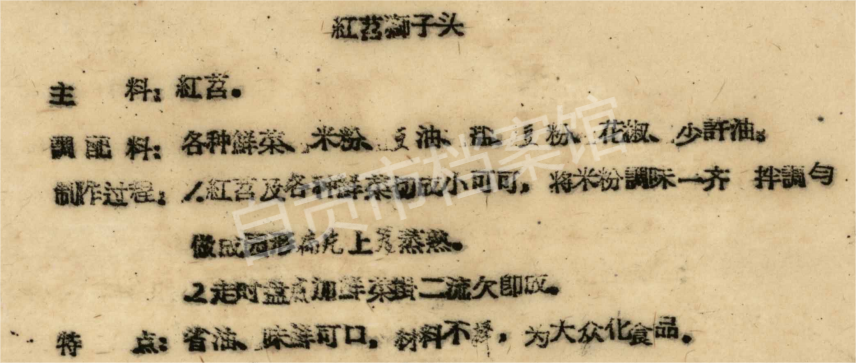 紅苕獅子头
主 料：紅苕。
調配料：各种鮮菜、米粉、豆油、盐、豆粉、花椒、少許油。
制作过程：1.紅苕及各种鮮菜切成小可可，将米粉調味一齐 拌調匀
做成园形 上 蒸熟。
2.走时盘 加鮮菜掛二流欠即成。
特 点：省油、味鮮可口，材料不 ，为大众化食品。
自贡市档案馆